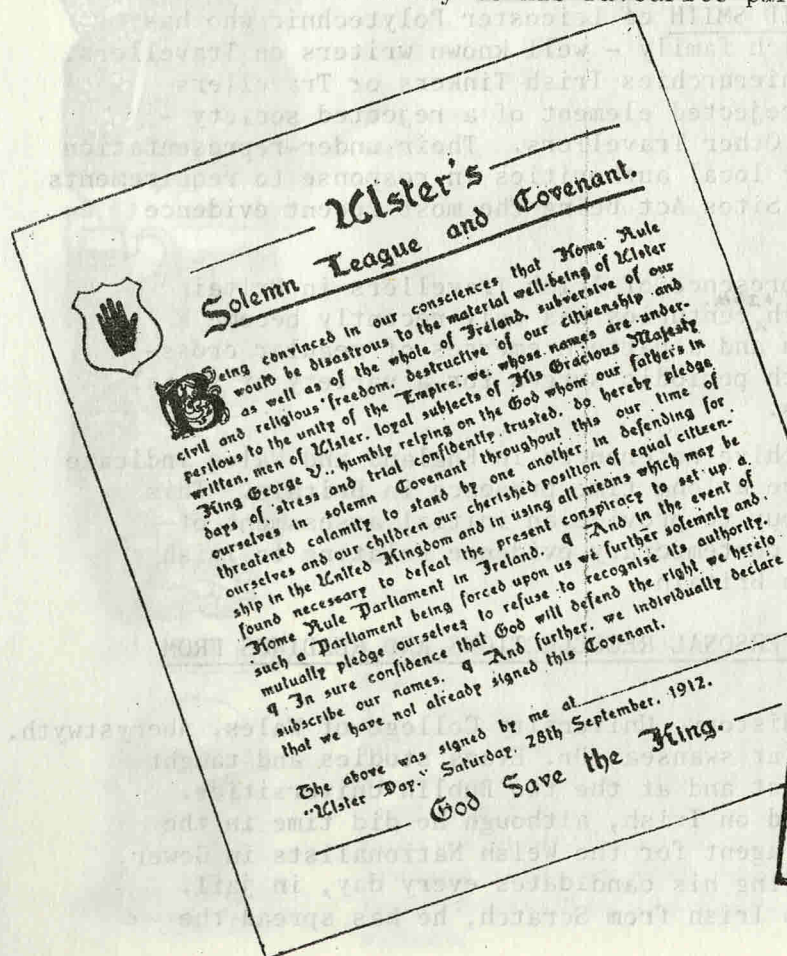 favourite
Ulster's
Solemn League and Covenant.
Being convinced in our consciences that Home Rule
would be disastrous to the material well-being of Ulster
as well as of the whole of Ireland, subversive of our
civil and religious freedom, destructive of our citizenship and
perilous to the unity of the Empire, we, whose names are under-
written, men of Ulster, loyal subjects of His Gracious Majesty
King George V., humbly relying on the God whom our fathers in
days of stress and trial confidently trusted, do hereby pledge
ourselves in solemn Covenant throughout this our time of
threatened calamity to stand by one another in defending for
ourselves and our children our cherished position of equal citizen-
ship in the United Kingdom and in using all means which may be
found necessary to defeat the present conspiracy to set up a
Home Rule Parliament in Ireland. ¶ And in the event of
such a Parliament being forced upon us we further solemnly and
mutually pledge ourselves to refuse to recognise its authority.
¶ In sure confidence that God will defend the right we hereto
subscribe our names. ¶ And further, we individually declare
that we have not already signed this Covenant.
The above was signed by me at
"Ulster Day," Saturday, 28th September, 1912.
God Save the King.